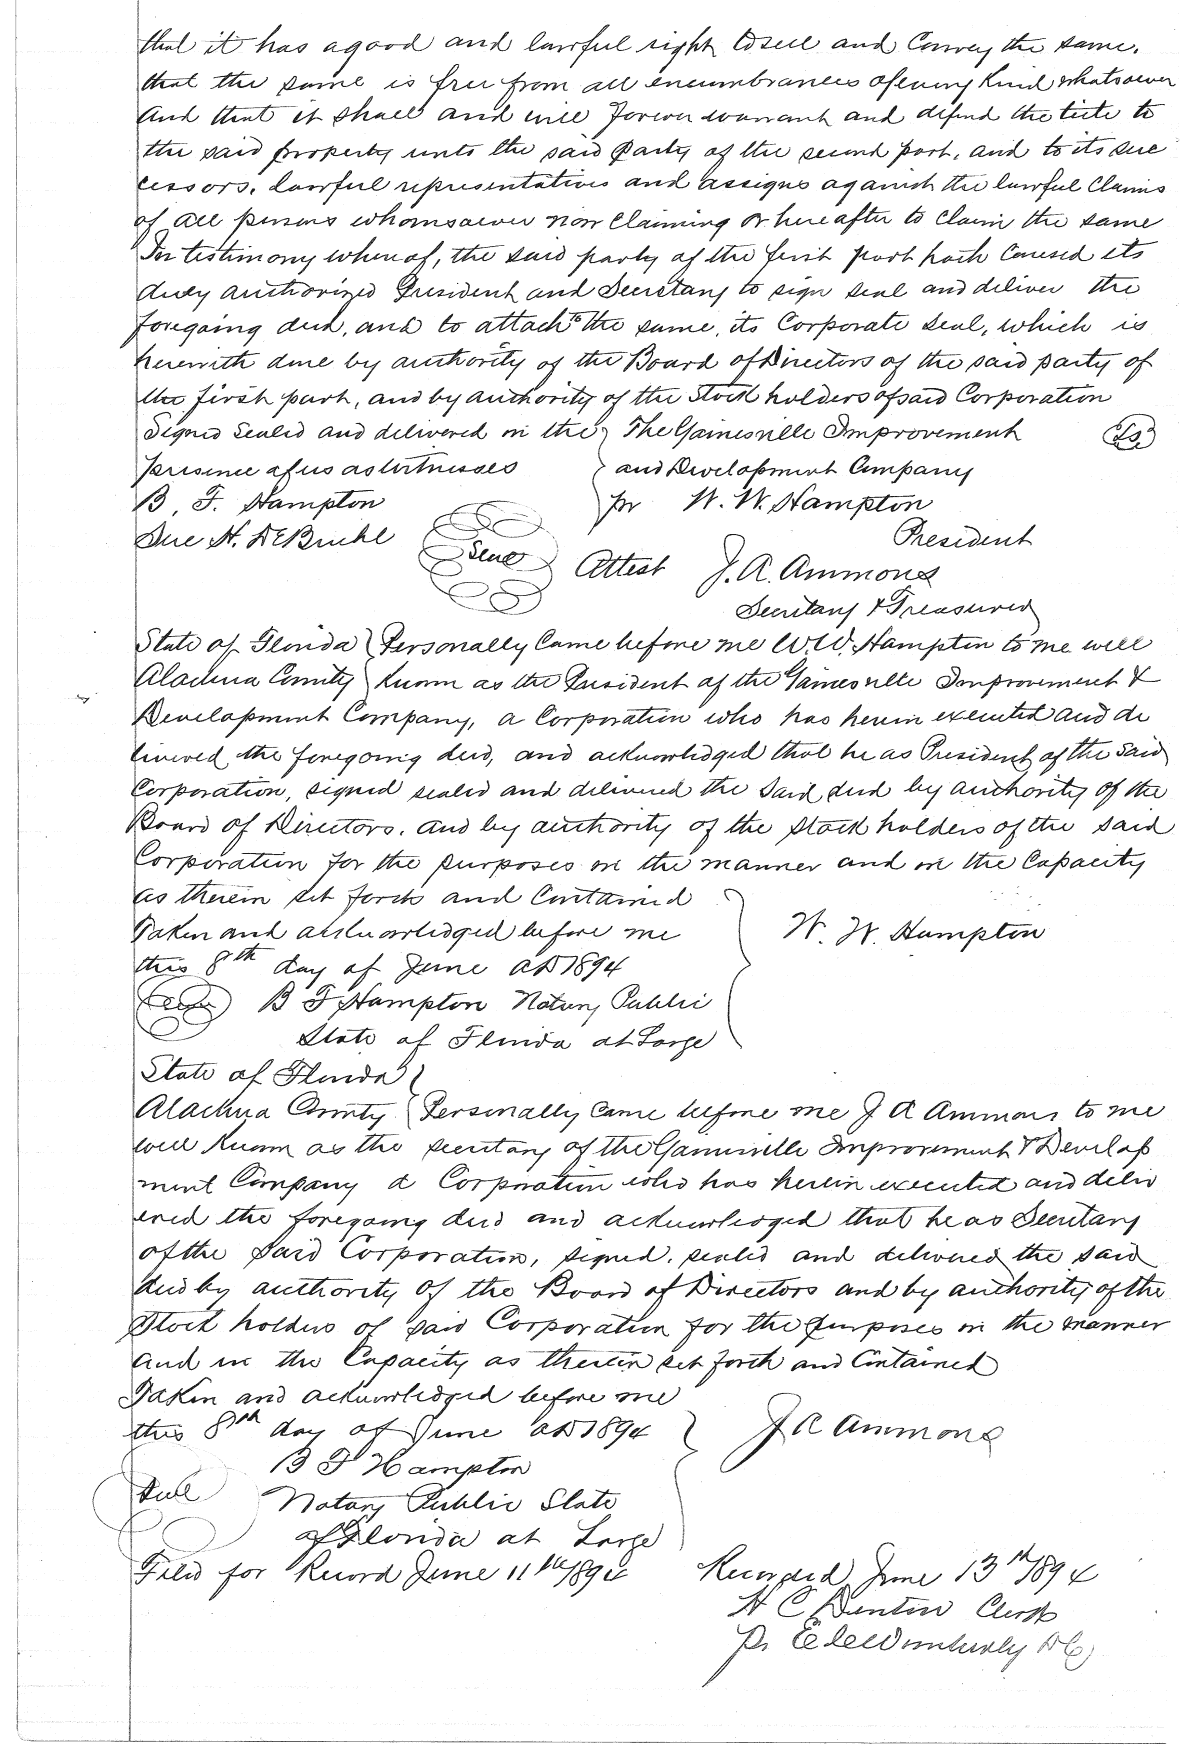 that it has a good and lawful right to sell and Convey the same.
that the same is free from all encumbrances of every kind whatsoever
And that it shall and will forever warrant and defend the title to
the said property unto the said Party of the second part, and to its suc
cessors, lawful representatives and assigns against the lawful Claims
of all persons whomsoever now Claiming or hereafter to Claim the same
In testimony whereof, the said party of the first part hath Caused its
duly authorized President and Secretary to sign seal and deliver the
foregoing deed, and to attach to the same, its Corporate Seal, which is
herewith done by authority of the Board of Directors of the said party of
the first part, and by authority of the Stock holders of said Corporation
Signed Sealed and delivered in the } The Gainesville Improvement (LS)
presence of us as witnesses and Development Company
B. F. Hampton Per W. W. Hampton
Sue H. DeBruhl President
Seal Attest J. A. Ammons
Secretary & Treasurer
State of Florida } Personally Came before me W. W. Hampton to me well
Alachua County } Known as the President of the Gainesville Improvement &
Development Company, a Corporation who has herein executed and de
livered the foregoing deed, and acknowledged that he as President of the Said
Corporation, signed sealed and delivered the Said deed by authority of the
Board of Directors. and by authority of the Stock holders of the said
Corporation for the purposes in the manner and in the Capacity
as therein set forth and Contained
Taken and acknowledged before me W. W. Hampton
this 8th day of June AD 1894
Seal B F Hampton Notary Public
State of Florida at Large
State of Florida }
Alachua County { Personally Came before me J A Ammons to me
well known as the Secretary of the Gainesville Improvement & Develop
ment Company a Corporation who has herein executed and deliv
ered the foregoing deed and acknowledged that he as Secretary
of the Said Corporation, signed, sealed and delivered the said
deed by authority of the Board of Directors and by authority of the
Stock holders of said Corporation for the purposes in the manner
and in the Capacity as therein set forth and Contained
Taken and acknowledged before me
this 8th day of June AD 1894 J A Ammons
B F Hampton
Seal Notary Public State
of Florida at Large
Filed for Record June 11th 1894 Recorded June 13th 1894
H C Denton Clerk
Per Wimberly DC